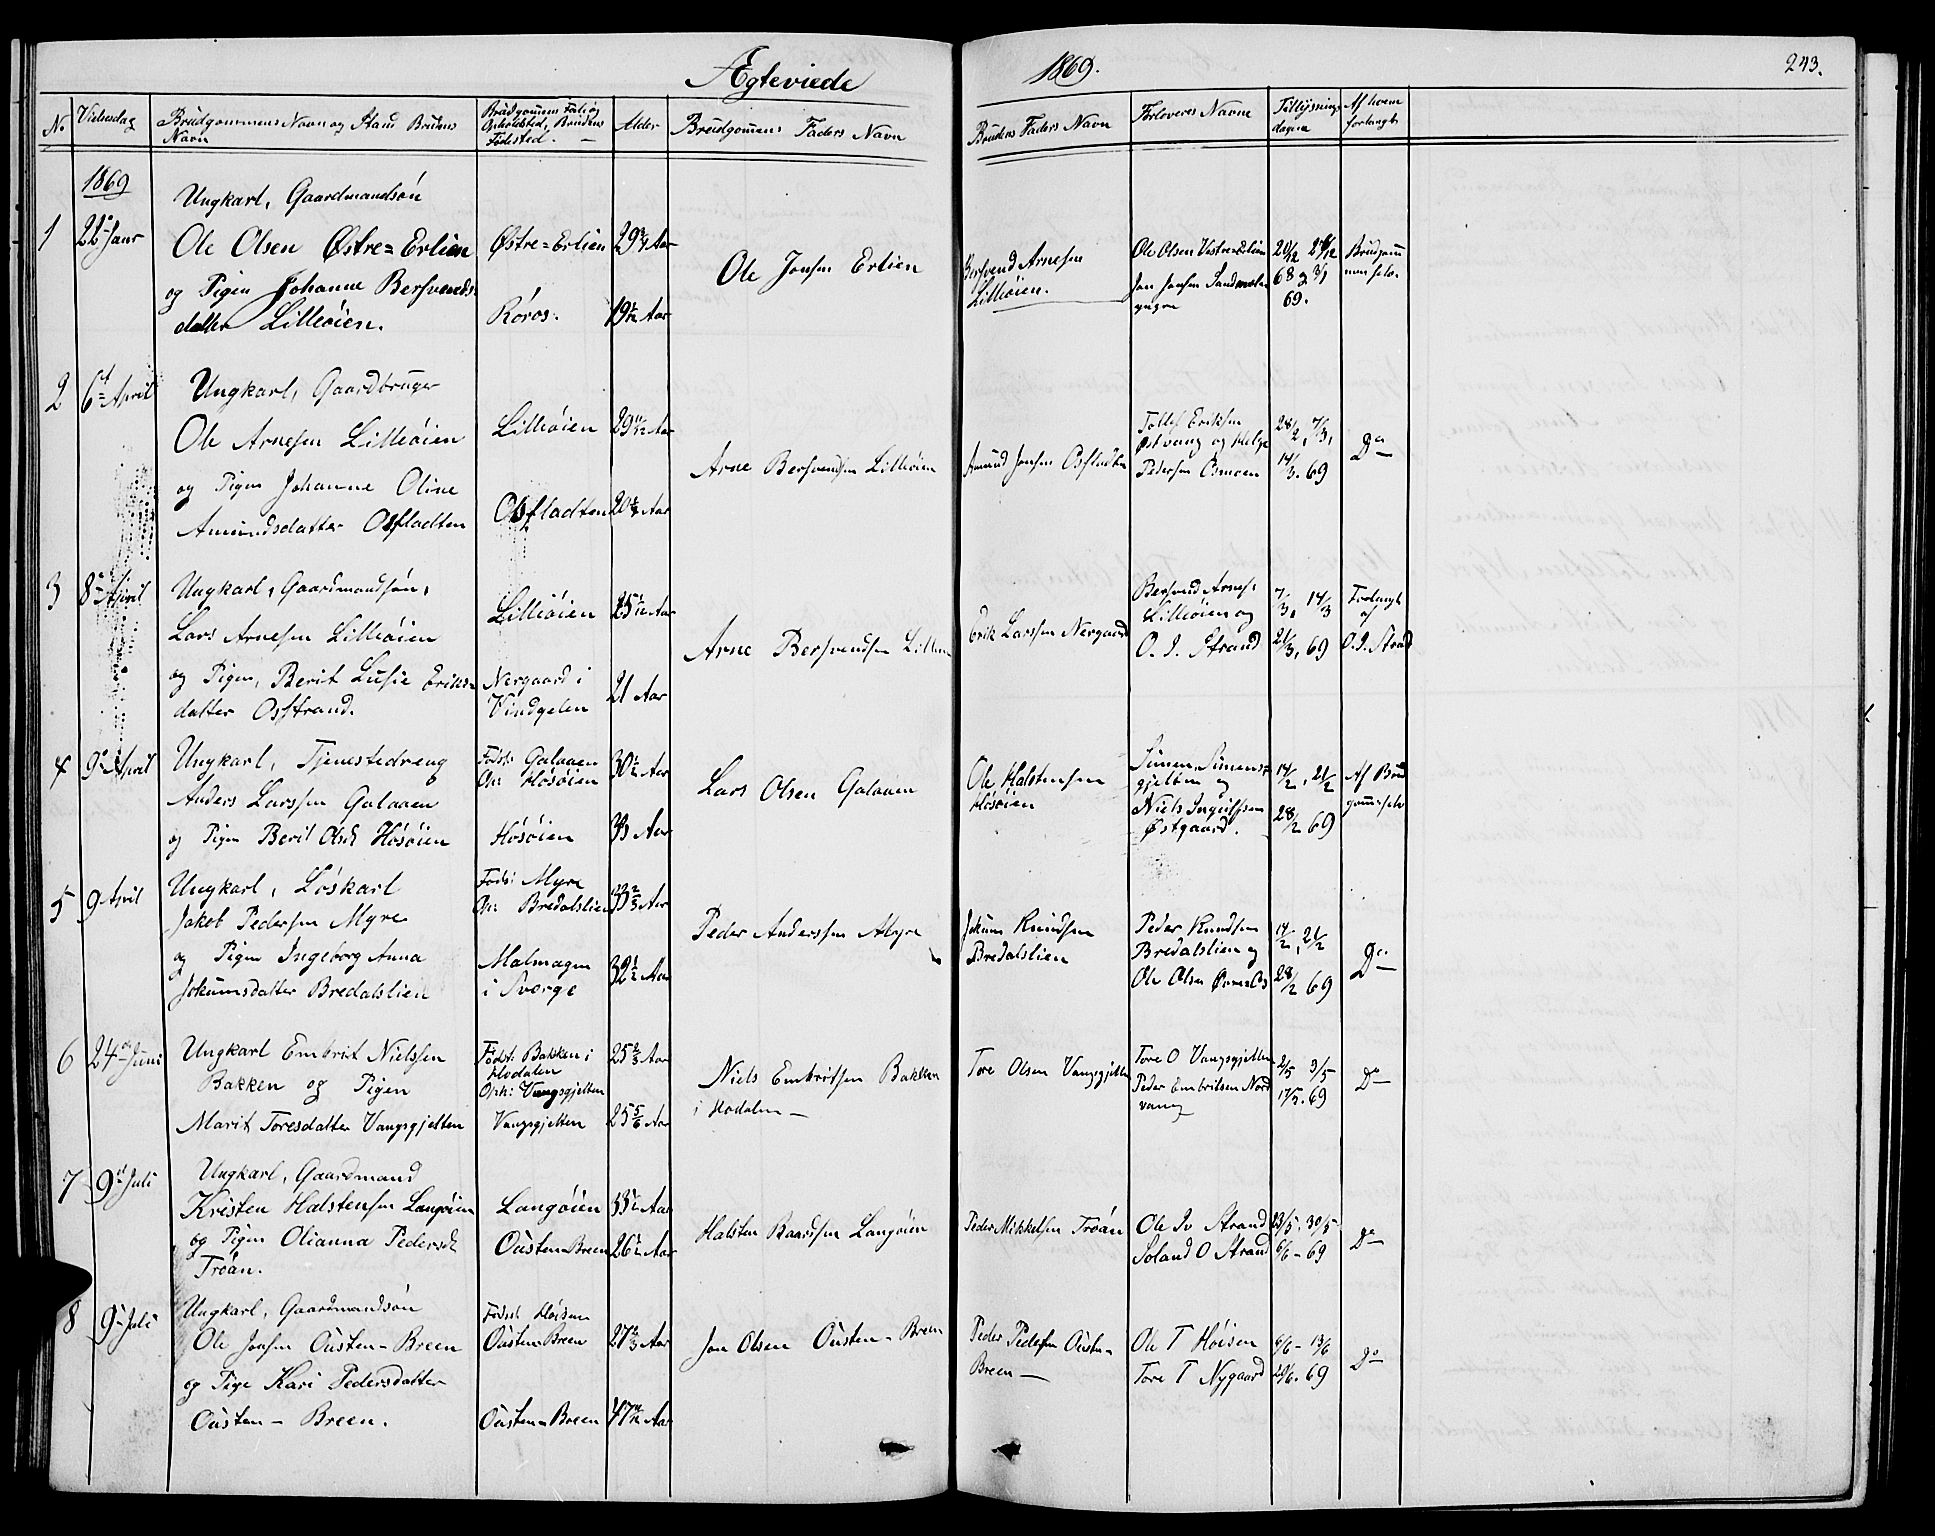 Ægteviede 1869. 243.
No Vielsesdag Brudgommens Navn og Stand Brudens Navn
Brudgommens Føde og Opholdsted, Brudens Fødested.
Alder
Brudgommens Faders Navn
Brudens Faders Navn
Forloveres Navne
Tillysnings dagen
Af hvem forlangt
1869
1 22de Janr
Ungkarl, Gaardmandsøn
Ole Olsen Østre=Erlien
og Pigen Johanne Bersvends
datter Lilleøien.
Østre=Erlien
Røros.
29 3/4 Aar
Aar
Ole Jonsen Erlien
Bersvend Arnesen
Lilleøien.
Ole Olsen Vestre=Erlien
Jon Jonsen Sandmælen
yngre
20/12 27/12
68 & 3/1
69.
Brudgom
men selv.
2 6te April
Ungkarl, Gaardbruger
Ole Arnesen Lilleøien
og Pigen Johanne Oline
Amundsdatter Osfladten
Lilleøien
Osfladten
29 11/12 Aar
Aar
Arne Bersvendsen Lilleøien
Amund Jonsen Osfladten
Tollef Eriksen
Østvang og Helge
Pedersen Osmoen
28/2, 7/3,
14/3. 69
Do
3 8de April
Ungkarl, Gaardmandsøn,
Lars Arnesen Lilleøien
og Pigen, Berit Lusie Eriks=
datter Osstrand.
Lilleøien
Nergaard i
Vindgelen
Aar
21 Aar
Arne Bersvendsen
Erik Larssen Nergaard
Bersvend Arnes:
Lilleøien og
O. J. Strand
7/3, 14/3
21/3, 69
Forlangt
af
O. J. Strand
4 9de April
Ungkarl, Tjenestedreng
Anders Larssen Galaaen
og Pigen Berit Olsd Høsøien
Fødst: Galaaen
Oph: Høsøien
Høsøien
30 1/2 Aar
Aar
Lars Olsen Galaaen
Ole Halstensen
Høsøien
Simen Simens:
gjelten og
Niels Ingulfsen
Østgaard.
14/2, 21/2
28/2 69
Af Brud
gom selv
5 9 April
Ungkarl, Løskarl
Jakob Pedersen Myre
og Pigen Ingeborg Anna
Jokumsdatter Bredalslien
Føds: Myre
Oph: Bredalslien
Malmagen
i Sverge
33 2/3 Aar
32 1/2 Aar
Peder Anderssen Myre
Jokum Knudsen
Bredalslien
Peder Knudsen
Bredalslien og
Ole Olsen
14/2, 21/2
28/2 69
Do
6 24de Juni
Ungkarl Embrit Nielssen
Bakken og Pigen
Marit Toresdatter Vangsgjelten
Fødst: Bakken i
Hodalen
Oph: Vangsgjelten
Vangsgjelten
25 2/3 Aar
25 5/6 Aar
Niels Embritsen Bakken
i Hodalen —
Tore Olsen Vangsgjelten
Tore O Vangsgjelten
Peder Embritsen Nord
vang
2/5 9/5
17/5. 69
Do
7 9de Juli
Ungkarl, Gaardmand
Kristen Halstensen Langøien
og Pigen Olianna Pedersd
Trøan.
Langøien
Ousten=Breen
Aar
26 1/2 Aar
Halsten Baardsen Langøien
Peder Mikkelsen Trøan
Ole Jo Strand
O Strand
23/5. 30/5—
6/6 — 69
Do
8 9de Juli
Ungkarl, Gaardmandsøn
Ole Jonsen Ousten=Breen
og Pige Kari Pedersdatter
Ousten — Breen.
Fødst Høisen
Ousten Breen
Ousten=Breen
27 2/3 Aar
Aar
Jon Olsen Ousten=Breen
Peder Pedersen Ousten=
Breen —
Ole T Høisen
Tore T Nygaard
6/6 — 13/6
20/6. 69
Do